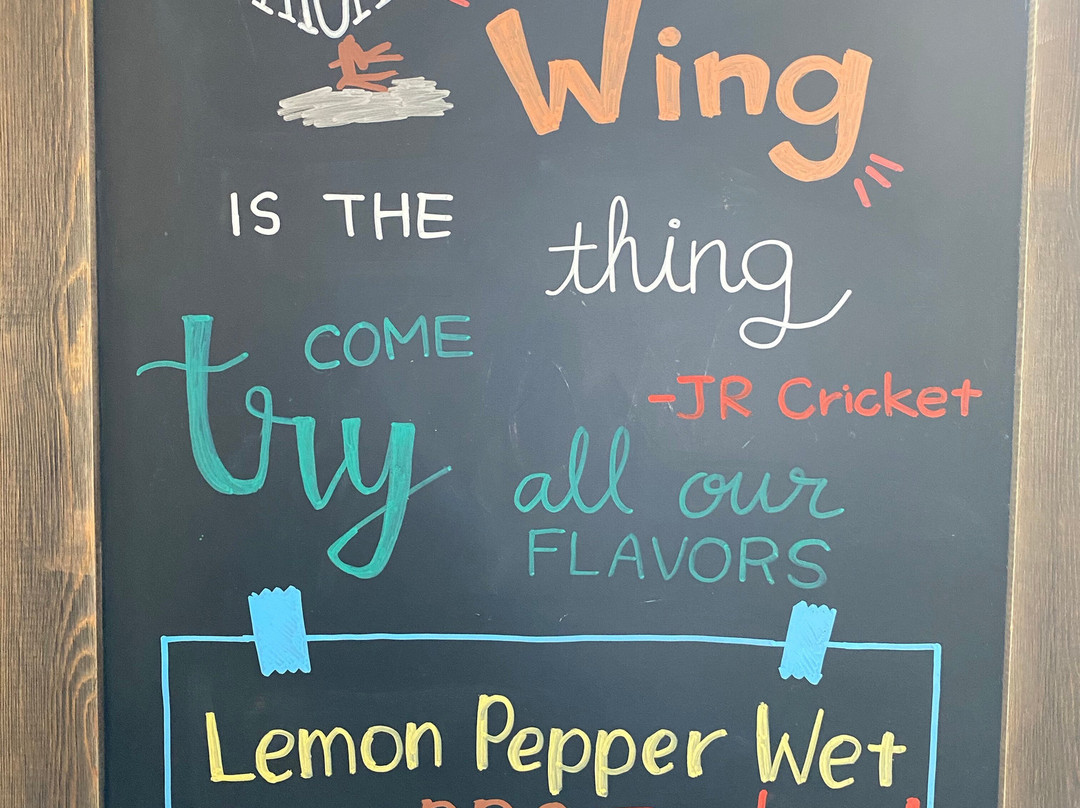 Wing
IS THE thing
-JR Cricket
COME
try all our
FLAVORS
Lemon Pepper Wet